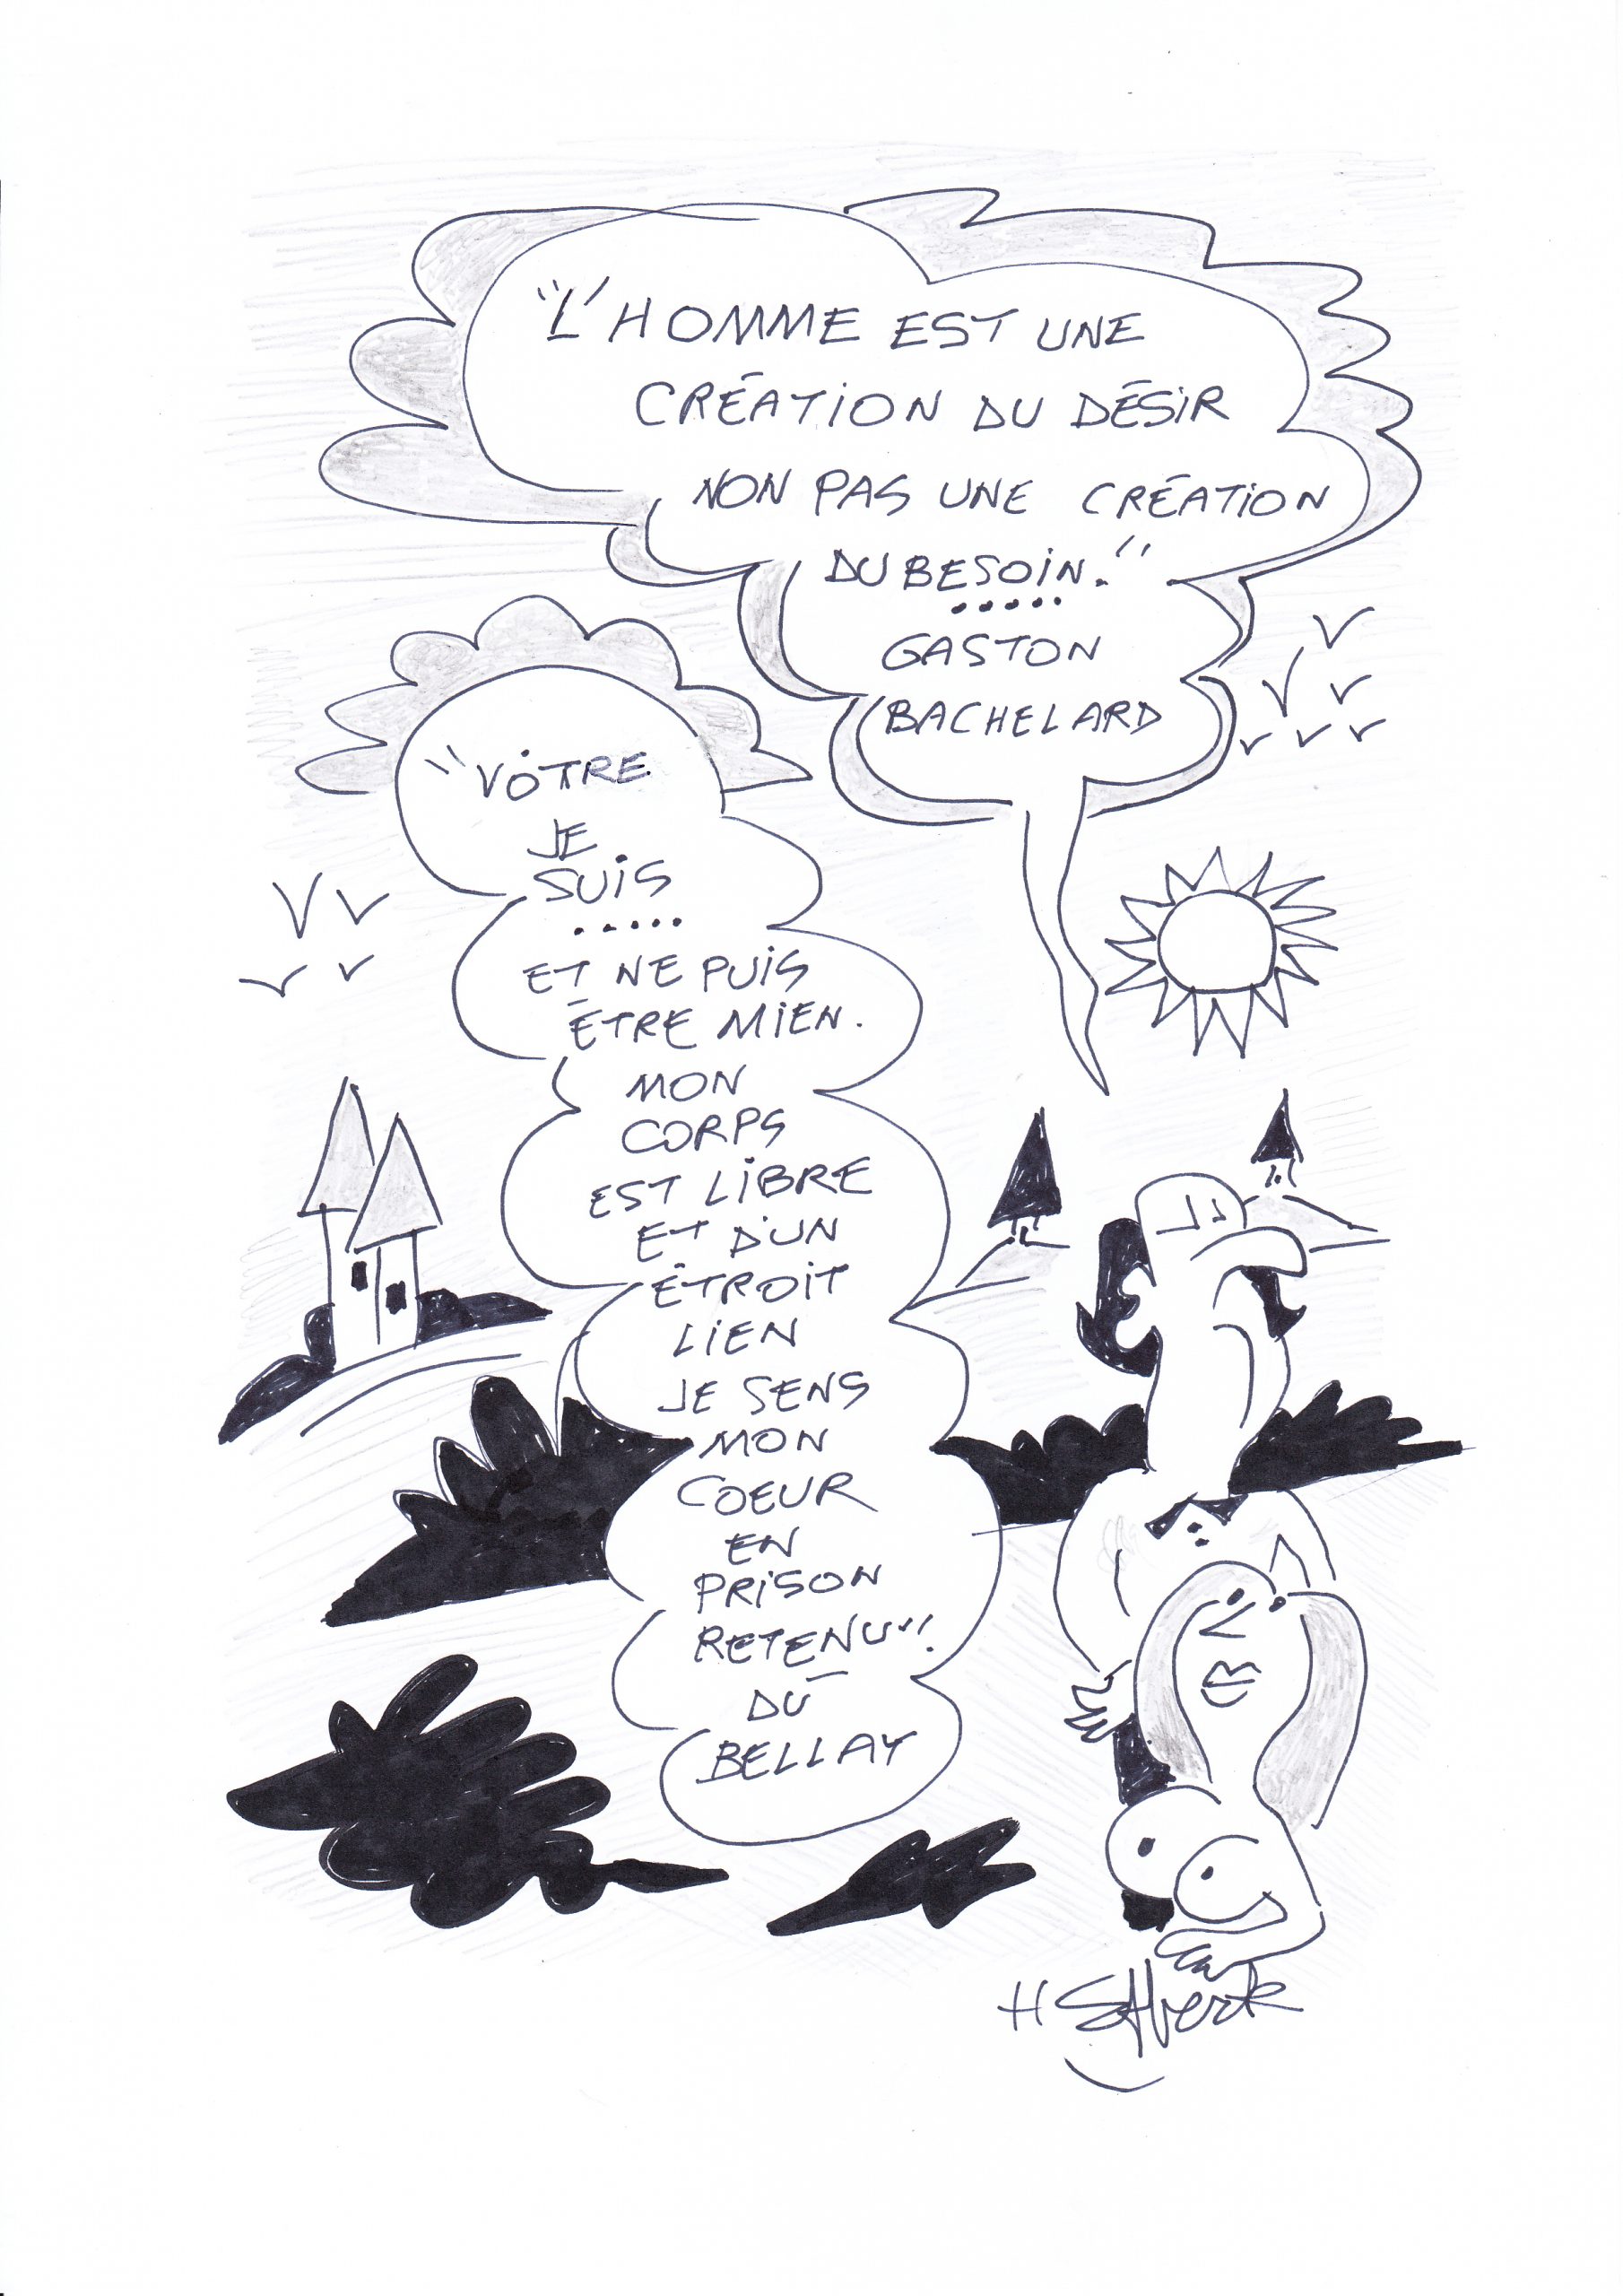 "L'HOMME EST UNE
CRÉATION DU DÉSIR
NON PAS UNE CRÉATION
DU BESOIN."
.....
GASTON
BACHELARD
"VÔTRE
JE
SUIS
.....
ET NE PUIS
ÊTRE MIEN.
MON
CORPS
EST LIBRE
ET D'UN
ÉTROIT
LIEN
JE SENS
MON
COEUR
EN
PRISON
RETENU".
DU
BELLAY
H